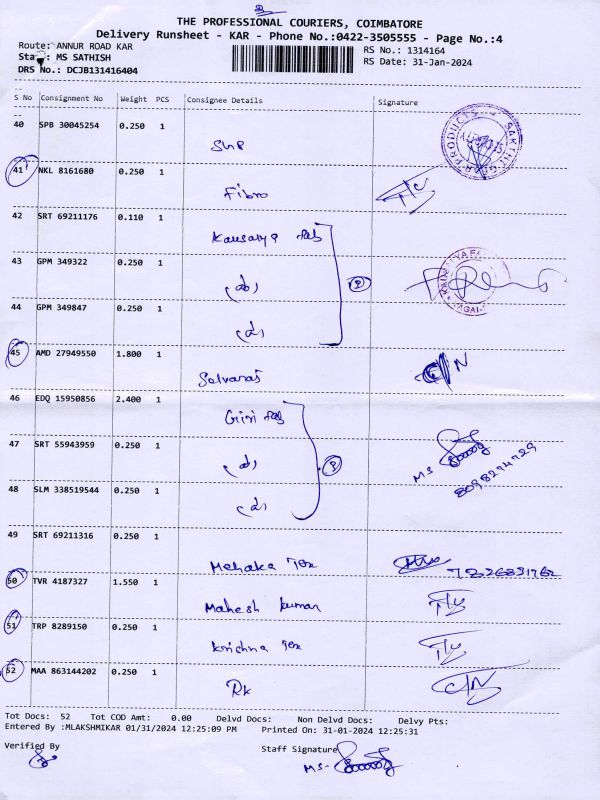 THE PROFESSIONAL COURIERS, COIMBATORE
Delivery Runsheet - KAR - Phone No.:0422-3505555 - Page No.:4
Route: ANNUR ROAD KAR
RS No.: 1314164
MS SATHISH
RS Date: 31-Jan-2024
DRS No.: DCJB131416404
S No Consignment No Weight PCS Consignee Details Signature
40 SPB 30045254 0.250 1
41 NKL 8161680 0.250 1
Fibro
42 SRT 69211176 0.110 1
Kausalya Fab
43 GPM 349322 0.250 1
(do)
44 GPM 349847 0.250 1
(do)
45 AMD 27949550 1.800 1
Selvaraj
46 EDQ 15950856 2.400 1
Giri Fab
47 SRT 55943959 0.250 1
(do)
MS
8098274729
48 SLM 338519544 0.250 1
(do)
49 SRT 69211316 0.250 1
Mehaka Tex
50 TVR 4187327 1.550 1
Mahesh kumar
51 TRP 8289150 0.250 1
krishna Tex
52 MAA 863144202 0.250 1
RK
Tot Docs: 52 Tot COD Amt: 0.00 Delvd Docs: Non Delvd Docs: Delvy Pts:
Entered By :MLAKSHMIKAR 01/31/2024 12:25:09 PM Printed On: 31-01-2024 12:25:31
Verified By Staff Signature
MS-